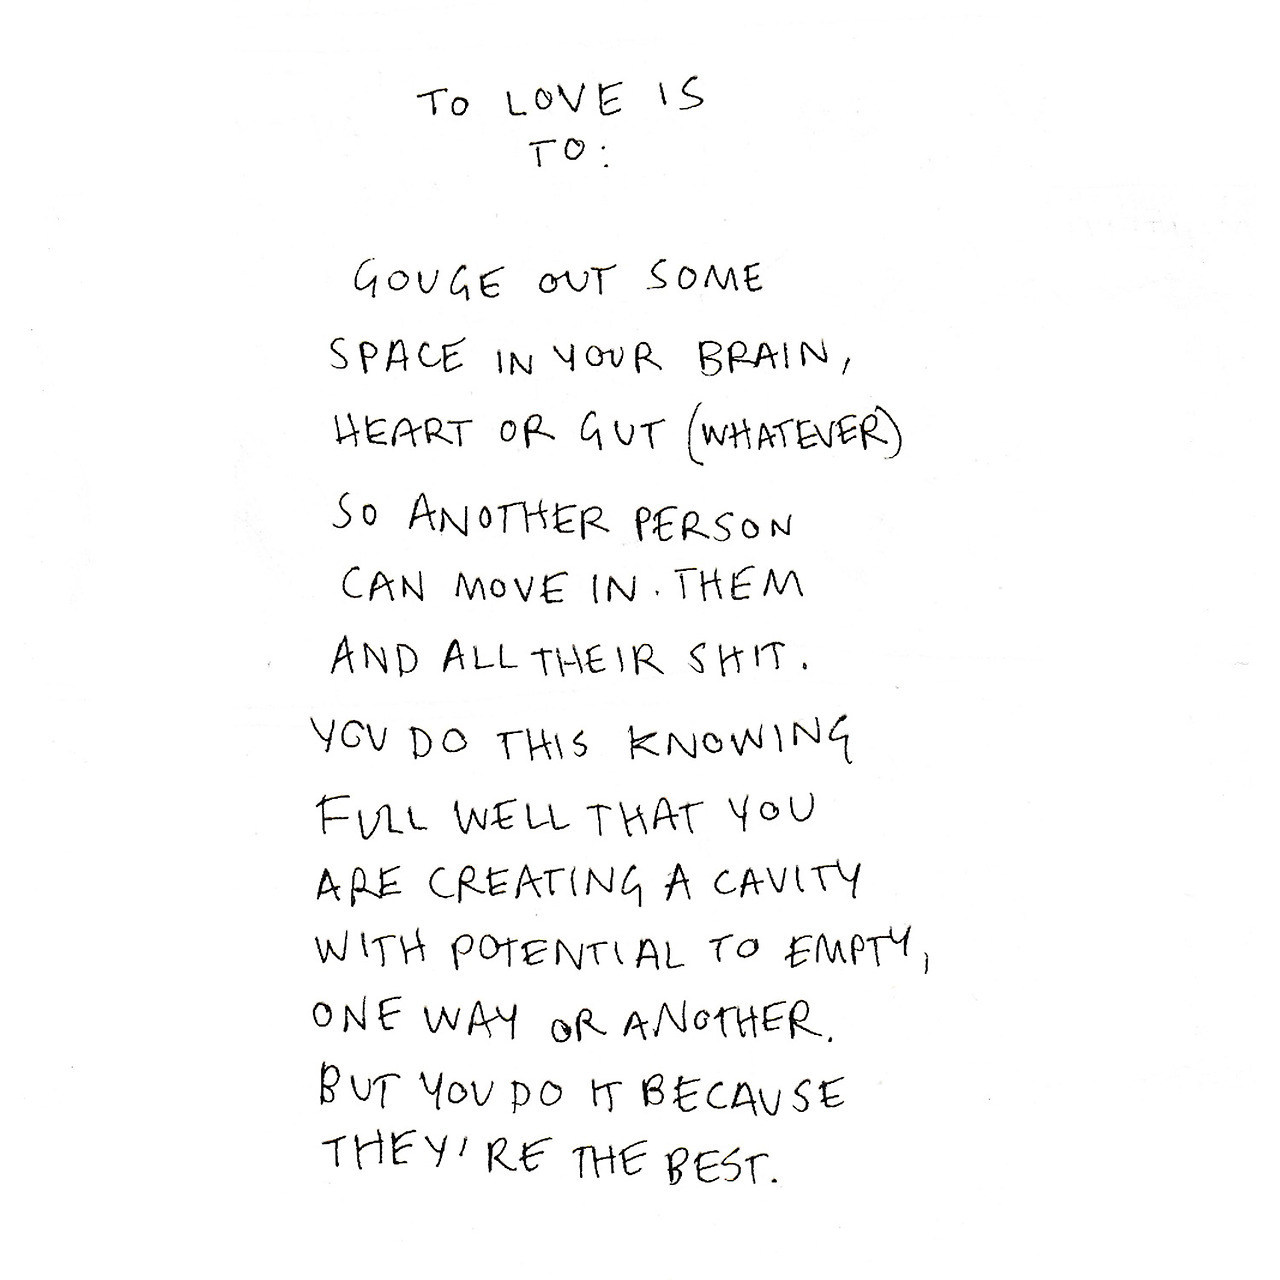 TO LOVE IS
TO:
GOUGE OUT SOME
SPACE IN YOUR BRAIN,
HEART OR GUT (WHATEVER)
SO ANOTHER PERSON
CAN MOVE IN. THEM
AND ALL THEIR SHIT.
YOU DO THIS KNOWING
FULL WELL THAT YOU
ARE CREATING A CAVITY
WITH POTENTIAL TO EMPTY,
ONE WAY OR ANOTHER.
BUT YOU DO IT BECAUSE
THEY'RE THE BEST.